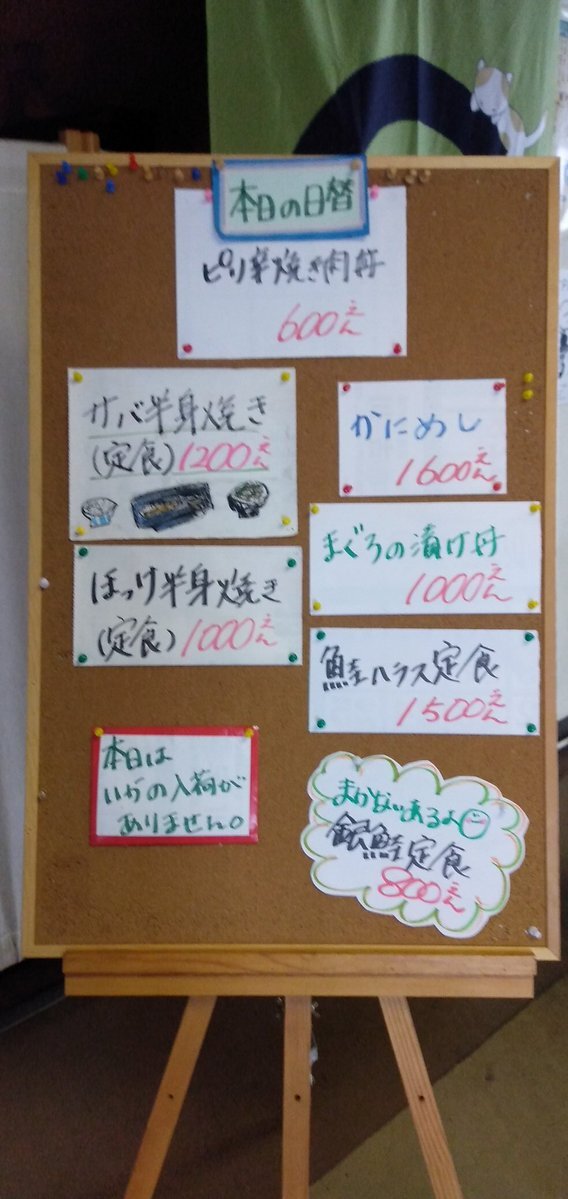 本日の日替
ピリ辛焼き肉丼
600えん
サバ半身焼き
(定食)1200えん
かにめし
1600えん
まぐろの漬け丼
1000えん
ほっけ半身焼き
(定食)1000えん
鮭ハラス定食
1500えん
本日は
いかの入荷が
ありません。
まかないあるよ
銀鮭定食
800えん